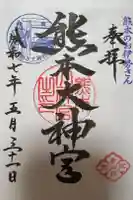 熊本のお伊勢さん
奉拝
熊本大神宮
令和七年五月三十一日